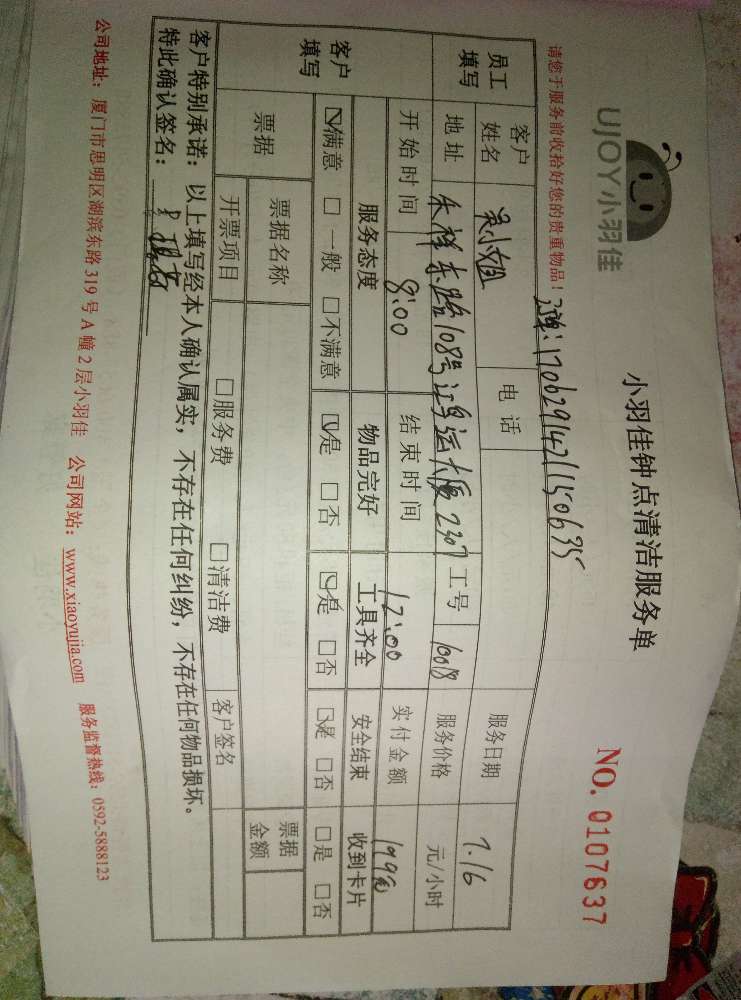 UJOY小羽佳
小羽佳钟点清洁服务单
NO. 0107637
请您于服务前收拾好您的贵重物品！
170629142115063
员工填写
客户姓名 吴小姐 电话 服务日期 7.16
地址 东路108号 大厦2307 工号 10018 服务价格 元/小时
开始时间 8:00 结束时间 12:00 实付金额 199元
客户填写
服务态度 物品完好 工具齐全 安全结束 收到卡片
☑满意 □一般 □不满意 ☑是 □否 ☑是 □否 ☑是 □否 □是 □否
票据 票据名称 票据金额
开票项目 □服务费 □清洁费 客户签名
客户特别承诺：以上填写经本人确认属实，不存在任何纠纷，不存在任何物品损坏。
特此确认签名：
公司地址：厦门市思明区湖滨东路319号A幢2层小羽佳 公司网站：www.xiaoyujia.com 服务监督热线：0592-5888123